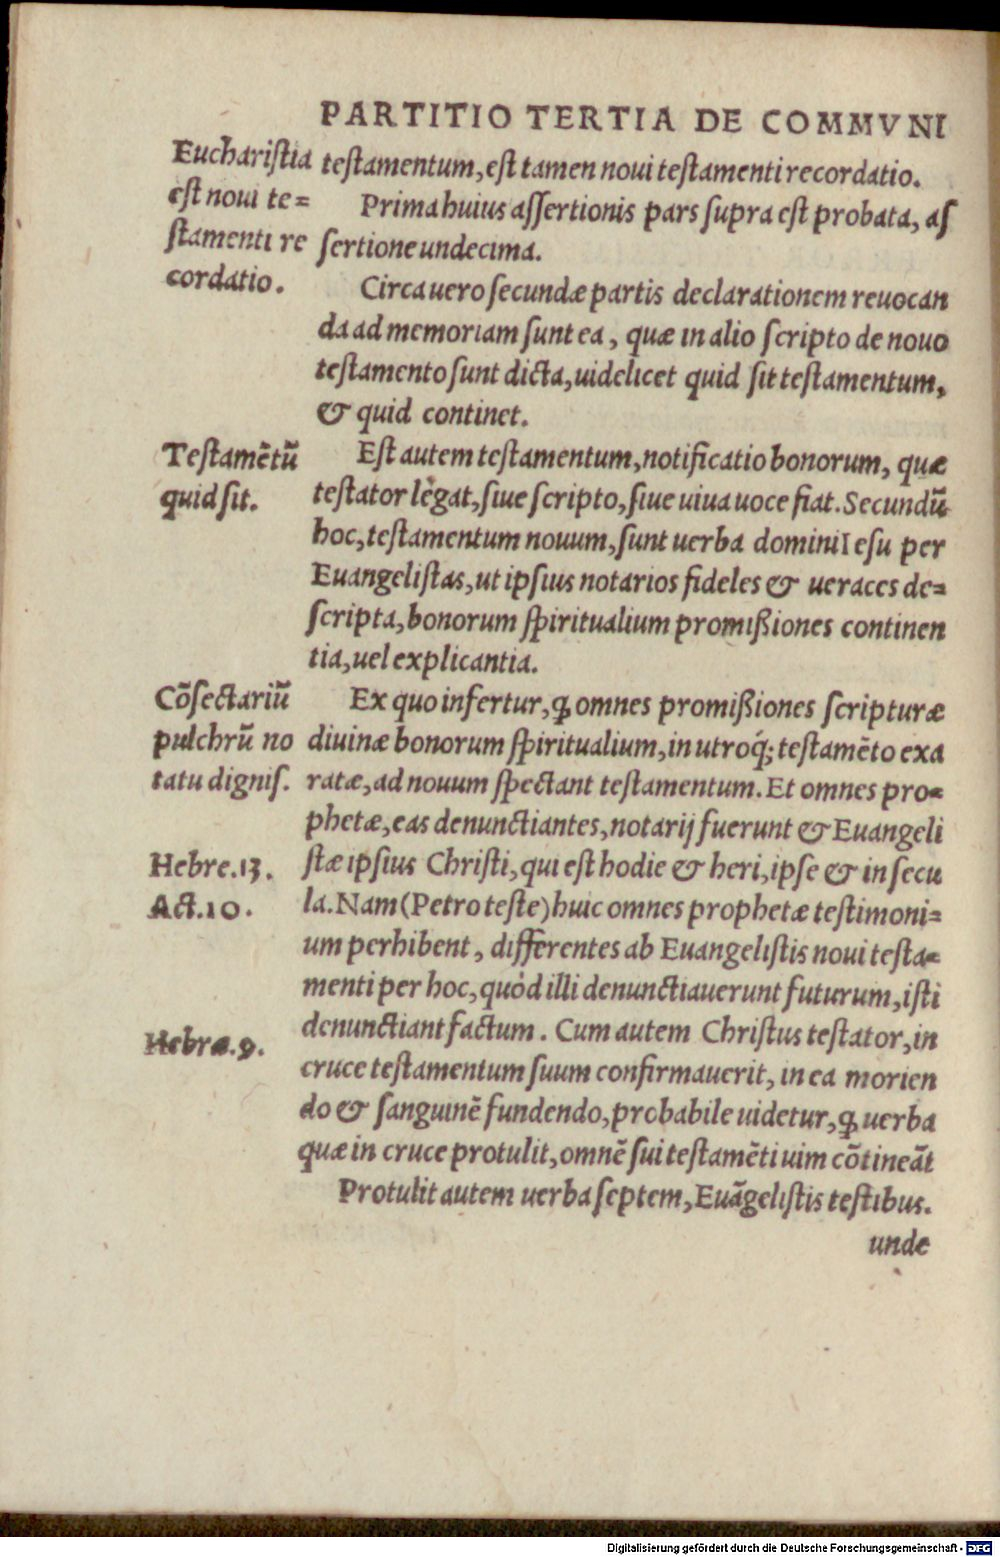 PARTITIO TERTIA DE COMMVNI
Euchariſtia
eſt noui te=
ſtamenti re
cordatio.
teſtamentum, eſt tamen noui teſtamenti recordatio.
Prima huius aſſertionis pars ſupra eſt probata, aſ
ſertione undecima.
Circa uero ſecundæ partis declarationem reuocan
da ad memoriam ſunt ea, quæ in alio ſcripto de nouo
teſtamento ſunt dicta, uidelicet quid ſit teſtamentum,
& quid continet.
Teſtamẽtũ
quid ſit.
Eſt autem teſtamentum, notificatio bonorum, quæ
teſtator lègat, ſiue ſcripto, ſiue uiua uoce fiat. Secundũ
hoc, teſtamentum nouum, ſunt uerba domini Ieſu per
Euangeliſtas, ut ipſius notarios fideles & ueraces de=
ſcripta, bonorum ſpiritualium promißiones continen
tia, uel explicantia.
Cõſectariũ
pulchrũ no
tatu digniſ.
Ex quo infertur, ꝙ omnes promißiones ſcripturæ
diuinæ bonorum ſpiritualium, in utroq́; teſtamẽto exa
ratæ, ad nouum ſpectant teſtamentum. Et omnes pro=
phetæ, eas denunctiantes, notarij fuerunt & Euangeli
Hebre.13.
Act.10.
ſtæ ipſius Chriſti, qui eſt hodie & heri, ipſe & in ſecu
la. Nam (Petro teſte) huic omnes prophetæ teſtimoni=
um perhibent, differentes ab Euangeliſtis noui teſta=
menti per hoc, quòd illi denunctiauerunt futurum, iſti
Hebræ.9.
denunctiant factum. Cum autem Chriſtus teſtator, in
cruce teſtamentum ſuum confirmauerit, in ea morien
do & ſanguinẽ fundendo, probabile uidetur, ꝙ uerba
quæ in cruce protulit, omnẽ ſui teſtamẽti uim cõtineãt
Protulit autem uerba ſeptem, Euãgeliſtis teſtibus.
unde
Digitalisierung gefördert durch die Deutsche Forschungsgemeinschaft - DFG